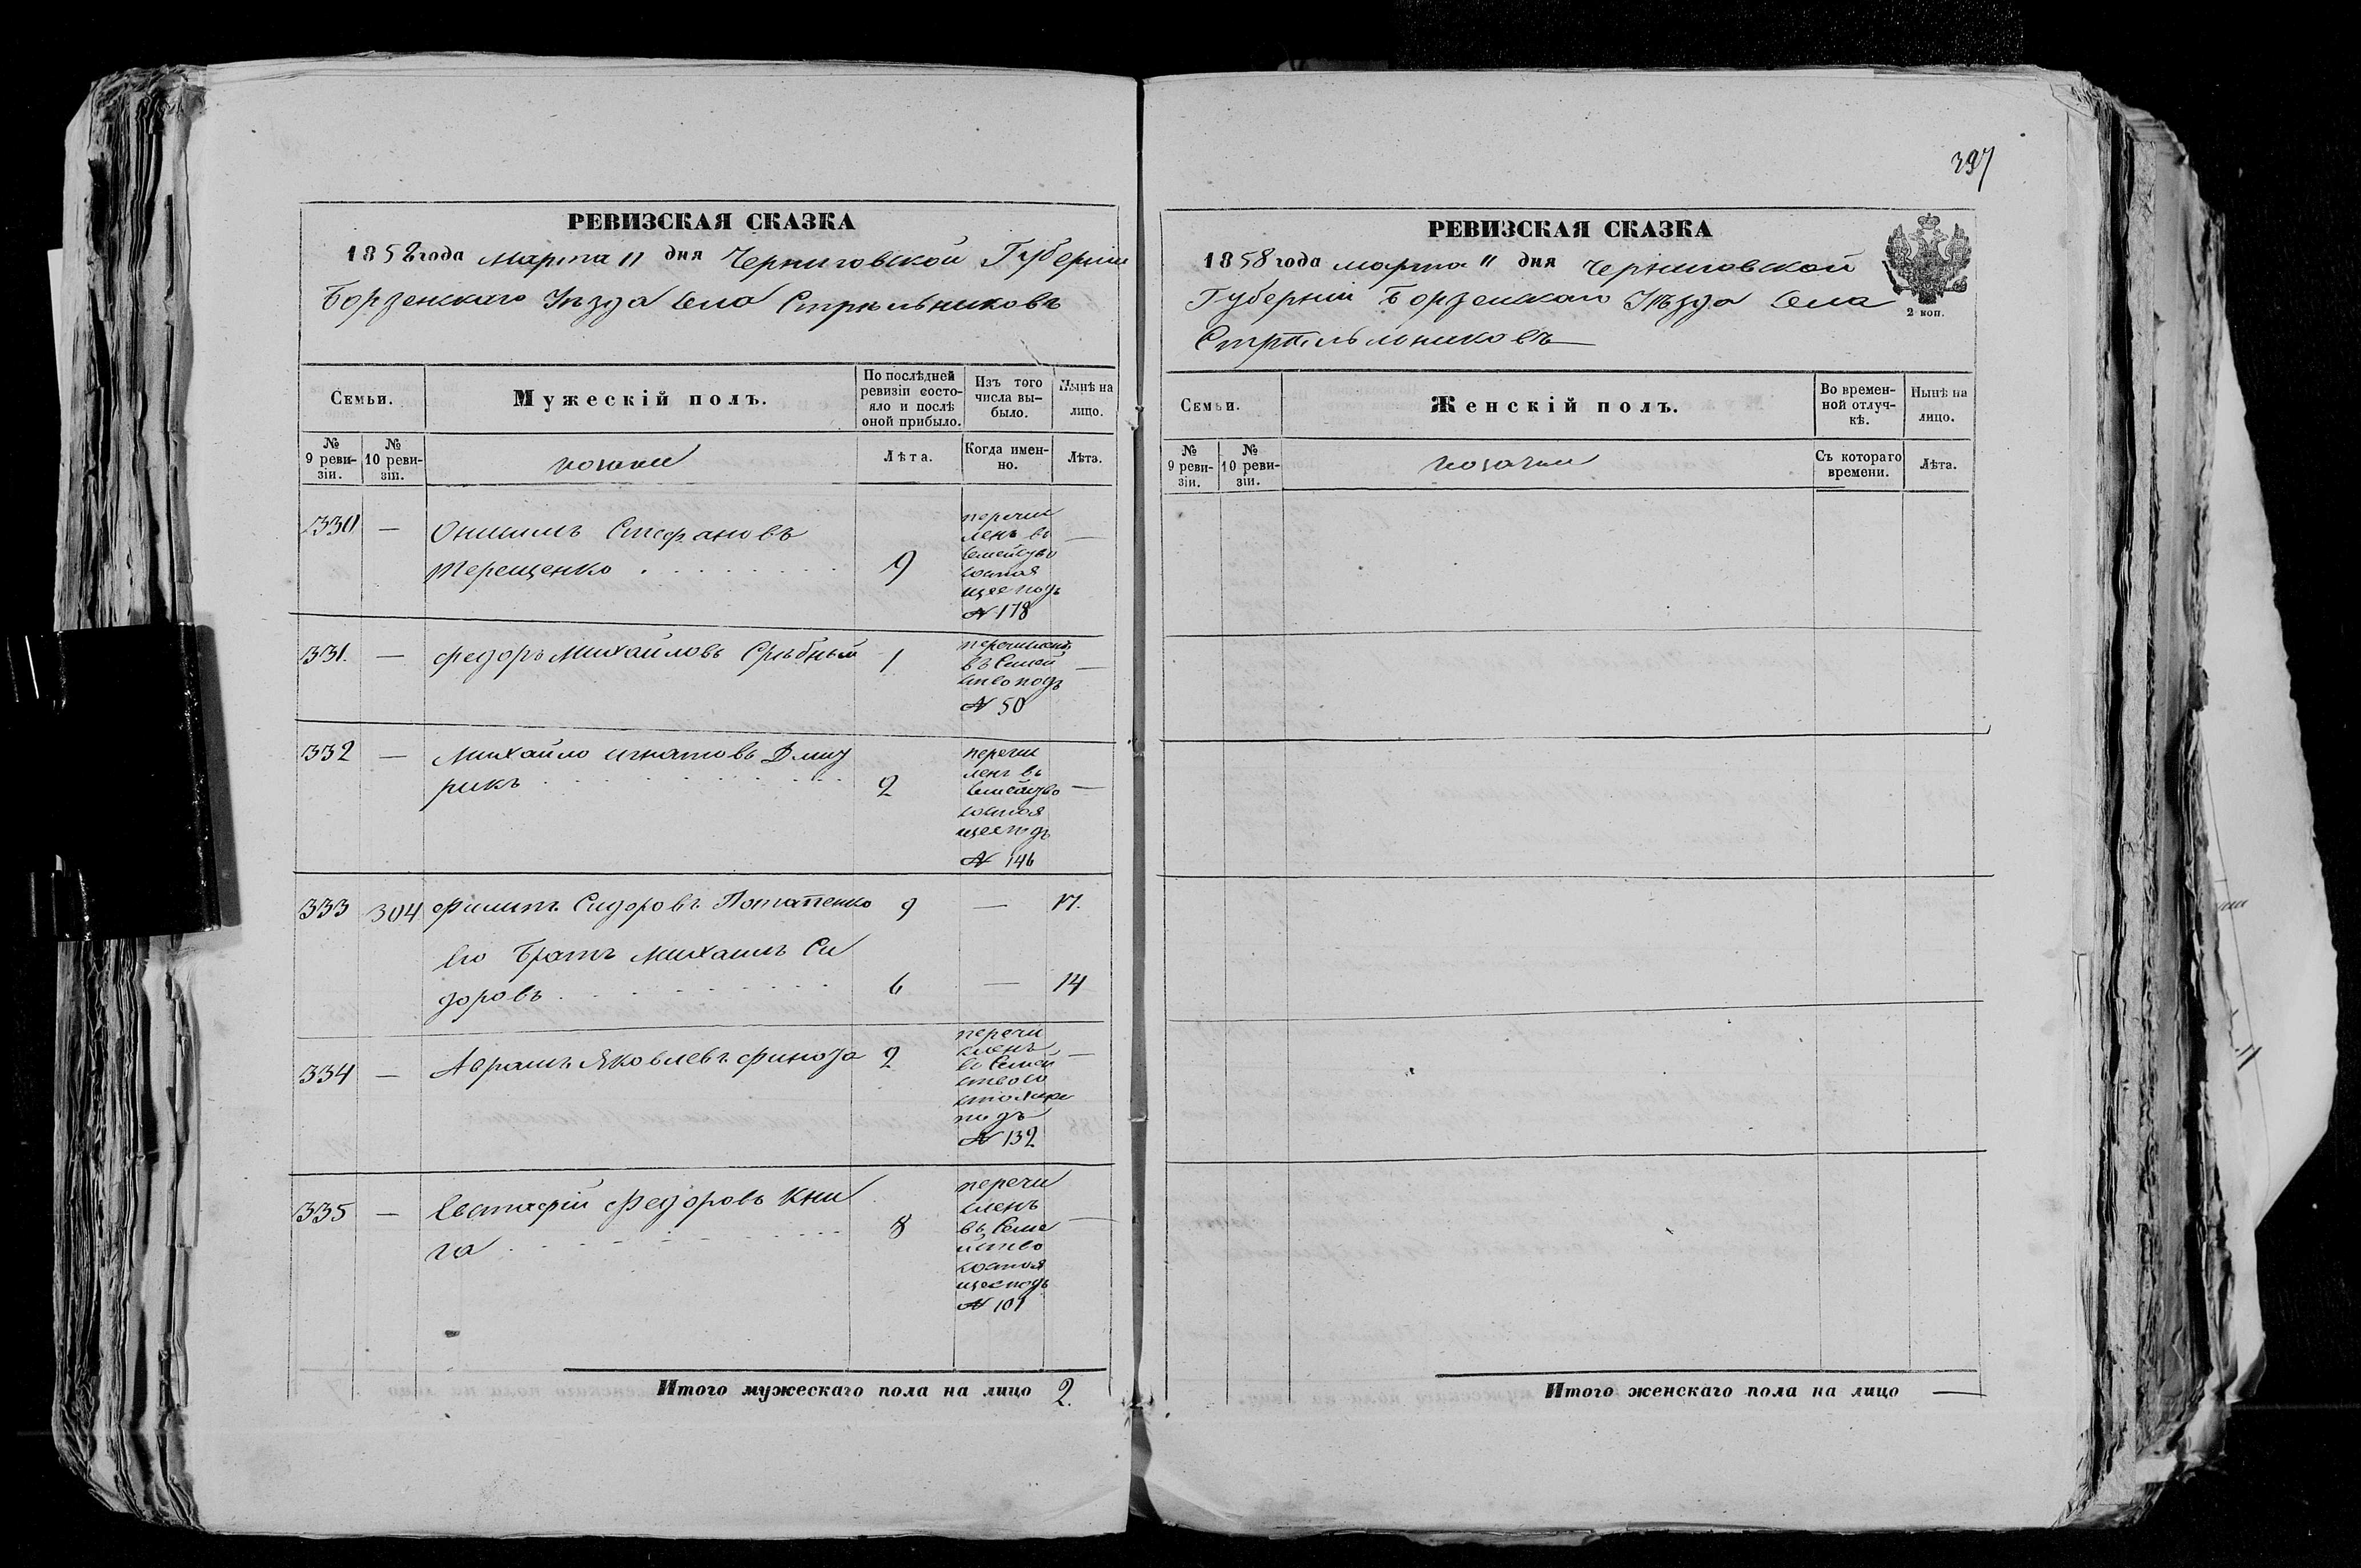 397
РЕВИЗСКАЯ СКАЗКА
1858 года марта 11 дня Черниговской Губерніи
Борзенскаго Уѣзда Села Стрѣльниковъ
Семьи.
Мужескій полъ.
По послѣдней ревизіи состояло и послѣ оной прибыло.
Изъ того числа выбыло.
Нынѣ на лицо.
№ 9 ревизіи.
№ 10 ревизіи.
козаки
Лѣта.
Когда именно.
Лѣта.
330 — Онисимъ Стефановъ
Терещенко 9
перечи
сленъ въ
семейство
состоя
щее подъ
№ 178
—
331. — Федоръ Михайловъ Срѣбный 1
перечисленъ
въ семей
ство подъ
№ 50
—
332 — Михайло Игнатовъ Дми
рикъ 2
перечи
сленъ въ
семейство
состоя
щее подъ
№ 146
—
333 304 Филипъ Сидоровъ Потапенко 9 — 17.
Его Братъ Михаилъ Си
доровъ 6 — 14
334 — Аврамъ Яковлевъ 2
перечи
сленъ
въ семей
ство со
стоящее
подъ
№ 132
—
335 — Евстафій Федоровъ Кни
га 8
перечи
сленъ
въ семе
йство
состоя
щее подъ
№ 101
—
Итого мужескаго пола на лицо 2.
РЕВИЗСКАЯ СКАЗКА
1858 года марта 11 дня Черниговской
Губерніи Борзенскаго Уѣзда Села
Стрѣльниковъ
2 коп.
Семьи.
Женскій полъ.
Во временной отлучкѣ.
Нынѣ на лицо.
№ 9 ревизіи.
№ 10 ревизіи.
козачки
Съ котораго времени.
Лѣта.
Итого женскаго пола на лицо —